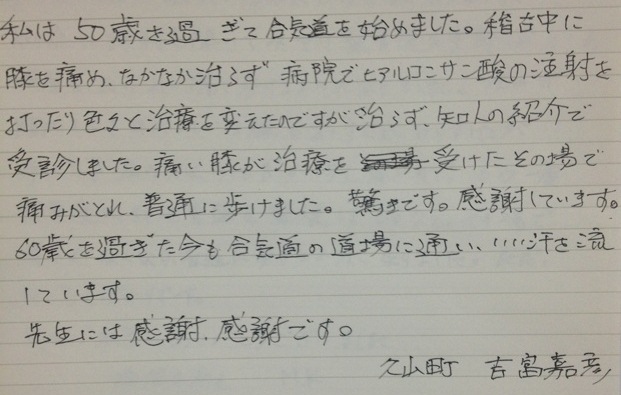 私は50歳を過ぎて合気道を始めました。稽古中に
膝を痛め、なかなか治らず病院でヒアルロンサン酸の注射を
打ったり色々と治療を変えたのですが治らず、知人の紹介で
受診しました。痛い膝が治療を受けたその場で
痛みがとれ、普通に歩けました。驚きです。感謝しています。
60歳を過ぎた今も合気道の道場に通い、いい汗を流
しています。
先生には感謝、感謝です。
久山町 吉富嘉彦